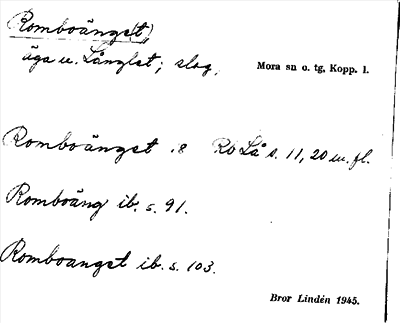 Romboängs(t)
äga u. Långlet; slog.
Mora sn o. tg, Kopp. l.
Romboängst .8 Rb Lå s. 11, 20 m. fl.
Romboäng ib. s. 91.
Romboangst ib. s. 103.
Bror Lindén 1945.